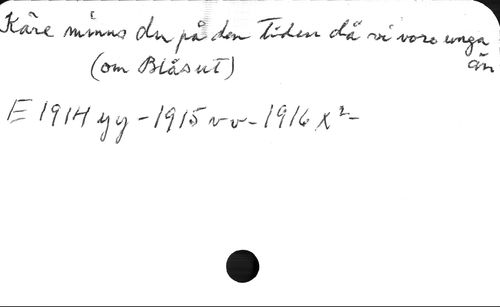 Käre minns du på den tiden då vi vore unga
än
(om Blåsut)
E 1914 yy - 1915 vv - 1916 x² -